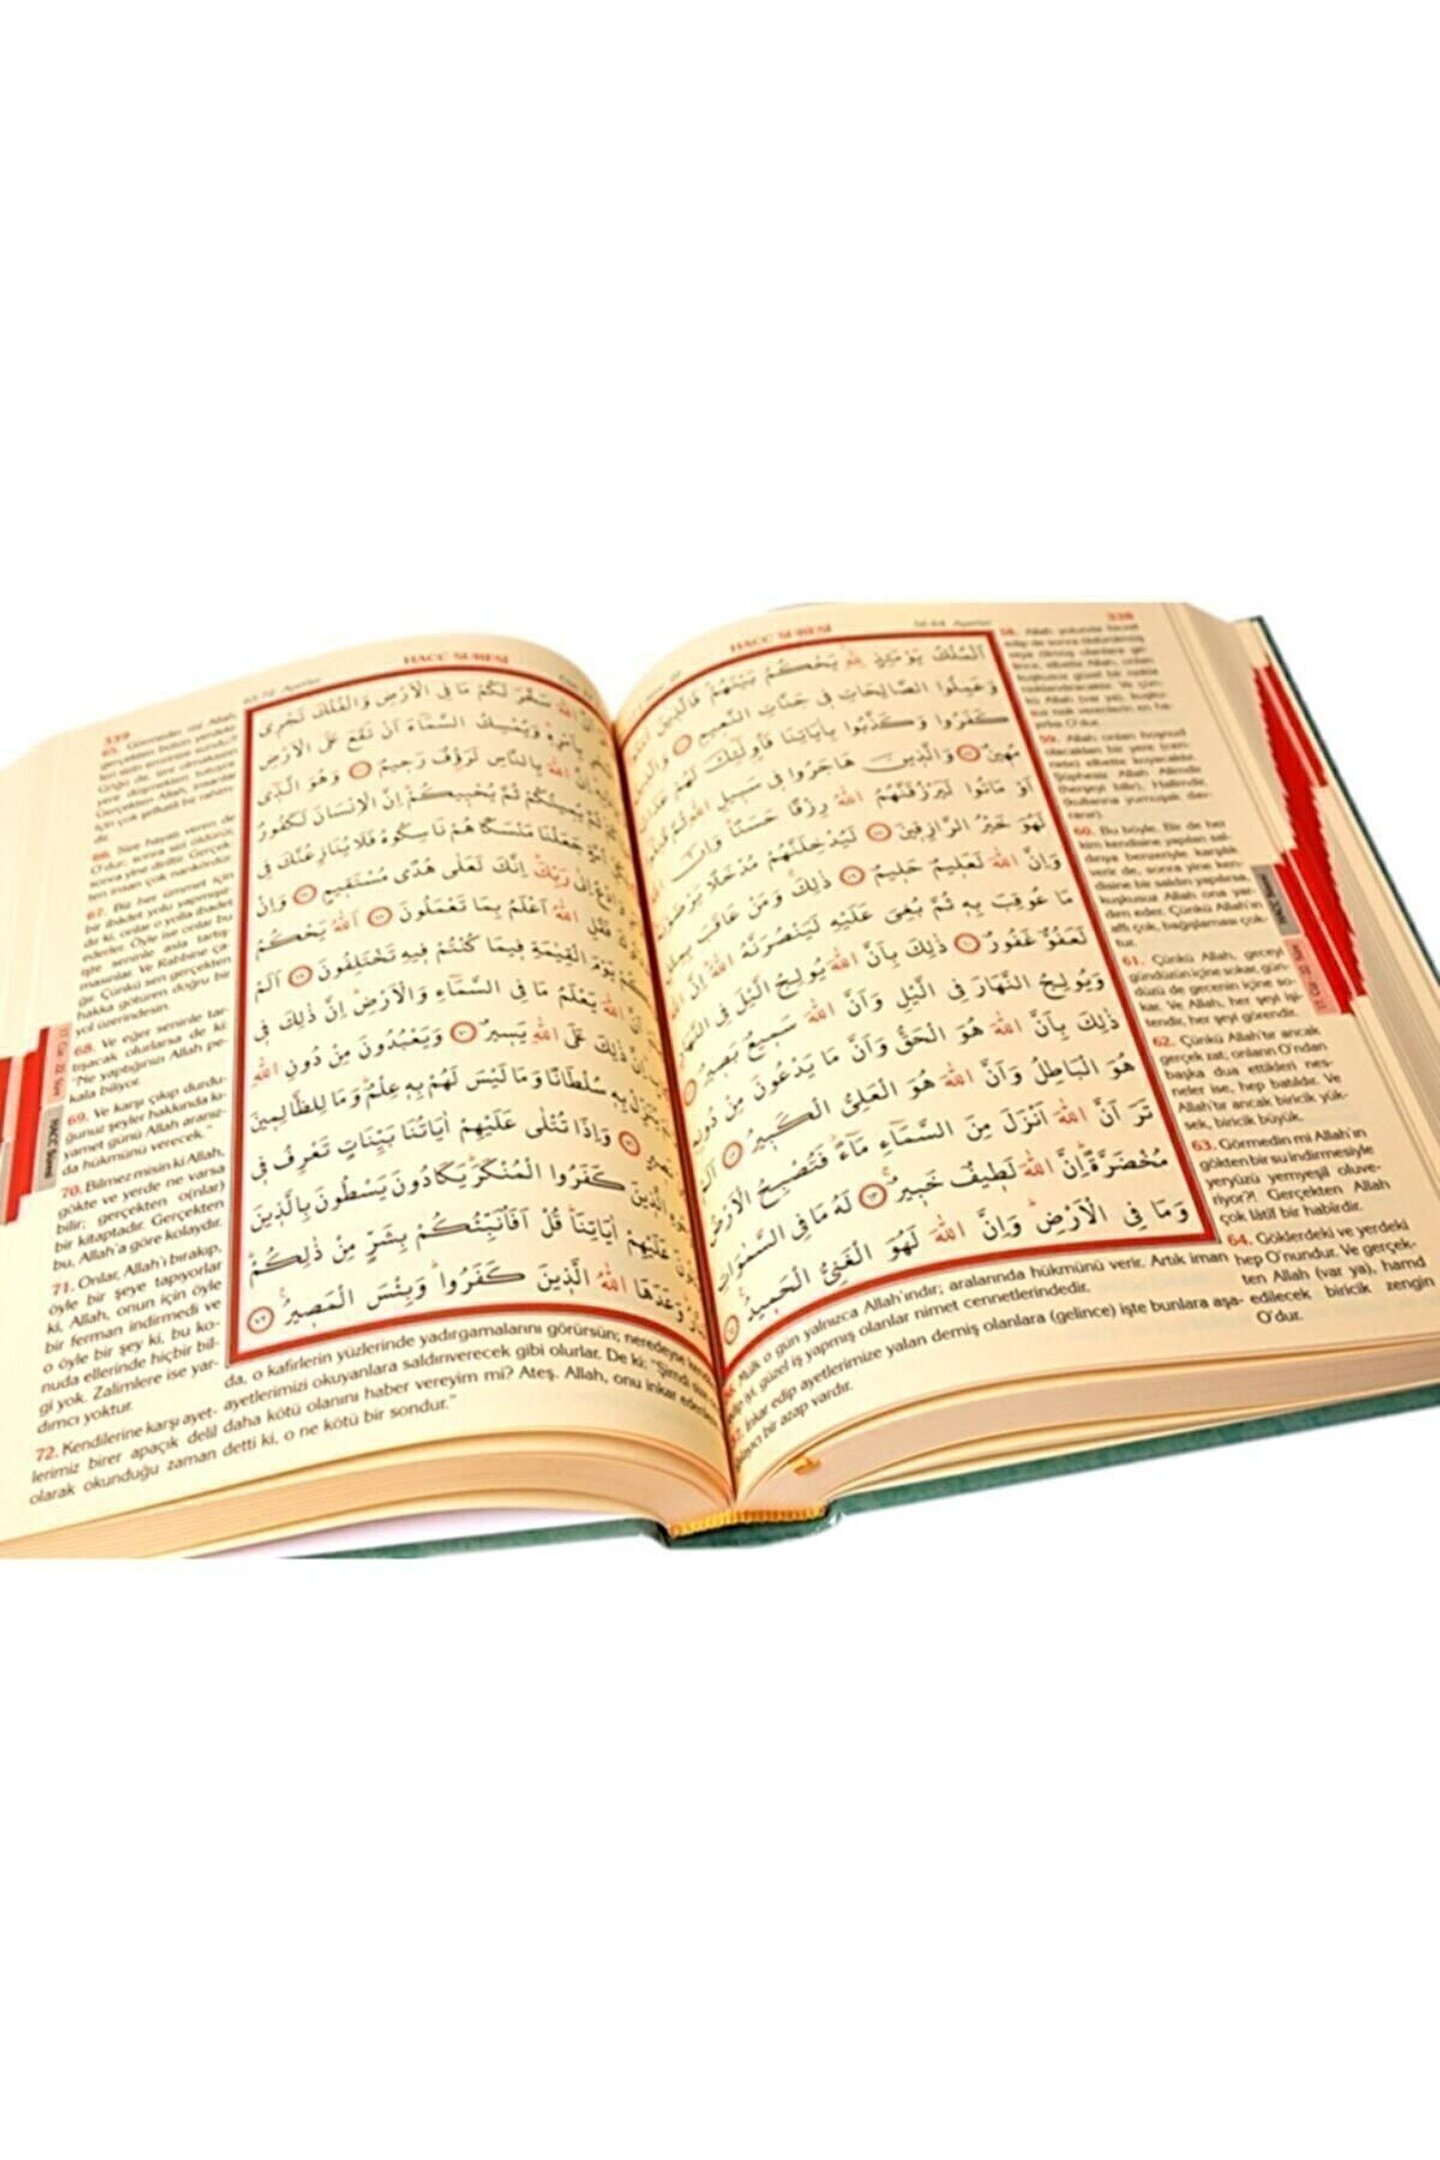 338
56-64. Ayetler
HACC SURESİ
اَلْمُلْكُ يَوْمَئِذٍ لِلّٰهِ يَحْكُمُ بَيْنَهُمْ فَالَّذِينَ اٰمَنُوا
وَعَمِلُوا الصَّالِحَاتِ فِى جَنَّاتِ النَّعِيمِ ۝ وَالَّذِينَ
كَفَرُوا وَكَذَّبُوا بِاٰيَاتِنَا فَاُولٰئِكَ لَهُمْ عَذَابٌ
مُهِينٌ ۝ وَالَّذِينَ هَاجَرُوا فِى سَبِيلِ اللّٰهِ ثُمَّ قُتِلُوا
اَوْ مَاتُوا لَيَرْزُقَنَّهُمُ اللّٰهُ رِزْقًا حَسَنًا وَاِنَّ اللّٰهَ
لَهُوَ خَيْرُ الرَّازِقِينَ ۝ لَيُدْخِلَنَّهُمْ مُدْخَلًا يَرْضَوْنَهُ
وَاِنَّ اللّٰهَ لَعَلِيمٌ حَلِيمٌ ۝ ذٰلِكَ وَمَنْ عَاقَبَ بِمِثْلِ
مَا عُوقِبَ بِهِ ثُمَّ بُغِىَ عَلَيْهِ لَيَنْصُرَنَّهُ اللّٰهُ اِنَّ اللّٰهَ
لَعَفُوٌّ غَفُورٌ ۝ ذٰلِكَ بِاَنَّ اللّٰهَ يُولِجُ الَّيْلَ فِى النَّهَارِ
وَيُولِجُ النَّهَارَ فِى الَّيْلِ وَاَنَّ اللّٰهَ سَمِيعٌ بَصِيرٌ ۝
ذٰلِكَ بِاَنَّ اللّٰهَ هُوَ الْحَقُّ وَاَنَّ مَا يَدْعُونَ مِنْ دُونِهِ
هُوَ الْبَاطِلُ وَاَنَّ اللّٰهَ هُوَ الْعَلِىُّ الْكَبِيرُ ۝ اَلَمْ
تَرَ اَنَّ اللّٰهَ اَنْزَلَ مِنَ السَّمَاءِ مَاءً فَتُصْبِحُ الْاَرْضُ
مُخْضَرَّةً اِنَّ اللّٰهَ لَطِيفٌ خَبِيرٌ ۝ لَهُ مَا فِى السَّمٰوَاتِ
وَمَا فِى الْاَرْضِ وَاِنَّ اللّٰهَ لَهُوَ الْغَنِىُّ الْحَمِيدُ ۝
Mülk o gün yalnızca Allah'ındır; aralarında hükmünü verir. Artık iman
edip iyi, güzel iş yapmış olanlar nimet cennetlerindedir.
57. İnkar edip ayetlerimize yalan demiş olanlara (gelince) işte bunlara aşa-
ğılayıcı bir azap vardır.
58. Allah yolunda hicret
edip de sonra öldürülmüş
veya ölmüş olanlara ge-
lince, elbette Allah, onları
59. Allah onları hoşnud
olacakları bir yere (cen-
nete) elbette koyacaktır.
Şüphesiz Allah Alimdir
(herşeyi bilir), Halimdir,
(kullarına yumuşak dav-
ranır).
60. Bu böyle. Bir de her
kim kendisine yapılan sal-
dırıya benzeriyle karşılık
verir de, sonra yine ken-
disine bir saldırı yapılırsa,
kuşkusuz Allah ona yar-
dım eder. Çünkü Allah'ın
affı çok, bağışlaması çok-
tur.
61. Çünkü Allah, geceyi
gündüzün içine sokar, gün-
düzü de gecenin içine so-
kar. Ve Allah, her şeyi işi-
tendir, her şeyi görendir.
62. Çünkü Allah'tır ancak
gerçek zat; onların O'ndan
başka dua ettikleri nes-
neler ise, hep batıldır. Ve
Allah'tır ancak biricik yük-
sek, biricik büyük.
63. Görmedin mi Allah'ın
gökten bir su indirmesiyle
yeryüzü yemyeşil oluve-
riyor?! Gerçekten Allah
çok lâtif bir habîrdir.
64. Göklerdeki ve yerdeki
hep O'nundur. Ve gerçek-
ten Allah (var ya), hamd
edilecek biricik zengin
O'dur.
HACC Suresi
339
65-72. Ayetler
HACC SURESİ
اَلَمْ تَرَ اَنَّ اللّٰهَ سَخَّرَ لَكُمْ مَا فِى الْاَرْضِ وَالْفُلْكَ تَجْرِى
فِى الْبَحْرِ بِاَمْرِهِ وَيُمْسِكُ السَّمَاءَ اَنْ تَقَعَ عَلَى الْاَرْضِ
اِلَّا بِاِذْنِهِ اِنَّ اللّٰهَ بِالنَّاسِ لَرَؤُفٌ رَحِيمٌ ۝ وَهُوَ الَّذِى
اَحْيَاكُمْ ثُمَّ يُمِيتُكُمْ ثُمَّ يُحْيِيكُمْ اِنَّ الْاِنْسَانَ لَكَفُورٌ
لِكُلِّ اُمَّةٍ جَعَلْنَا مَنْسَكًا هُمْ نَاسِكُوهُ فَلَا يُنَازِعُنَّكَ فِى
الْاَمْرِ وَادْعُ اِلٰى رَبِّكَ اِنَّكَ لَعَلٰى هُدًى مُسْتَقِيمٍ ۝ وَاِنْ
جَادَلُوكَ فَقُلِ اللّٰهُ اَعْلَمُ بِمَا تَعْمَلُونَ ۝ اَللّٰهُ يَحْكُمُ
بَيْنَكُمْ يَوْمَ الْقِيٰمَةِ فِيمَا كُنْتُمْ فِيهِ تَخْتَلِفُونَ ۝ اَلَمْ
تَعْلَمْ اَنَّ اللّٰهَ يَعْلَمُ مَا فِى السَّمَاءِ وَالْاَرْضِ اِنَّ ذٰلِكَ فِى
كِتَابٍ اِنَّ ذٰلِكَ عَلَى اللّٰهِ يَسِيرٌ ۝ وَيَعْبُدُونَ مِنْ دُونِ اللّٰهِ
مَا لَمْ يُنَزِّلْ بِهِ سُلْطَانًا وَمَا لَيْسَ لَهُمْ بِهِ عِلْمٌ وَمَا لِلظَّالِمِينَ
مِنْ نَصِيرٍ ۝ وَاِذَا تُتْلٰى عَلَيْهِمْ اٰيَاتُنَا بَيِّنَاتٍ تَعْرِفُ فِى
وُجُوهِ الَّذِينَ كَفَرُوا الْمُنْكَرَ يَكَادُونَ يَسْطُونَ بِالَّذِينَ
يَتْلُونَ عَلَيْهِمْ اٰيَاتِنَا قُلْ اَفَاُنَبِّئُكُمْ بِشَرٍّ مِنْ ذٰلِكُمْ
اَلنَّارُ وَعَدَهَا اللّٰهُ الَّذِينَ كَفَرُوا وَبِئْسَ الْمَصِيرُ ۝
65. Görmedin mi Allah,
gerçekten bütün yerdekileri
Göğü de, izni olmaksızın
yere düşmekten tutuyor.
Gerçekten Allah, insanlar
için çok şefkatli bir rahîm-
dir.
66. Size hayatı veren de
O'dur; sonra sizi öldürür,
sonra yine diriltir. Gerçek-
ten insan çok nankördür.
67. Biz her ümmet için
bir ibadet yolu yapmışız-
dır ki, onlar o yolla ibadet
ederler. Öyle ise onlar bu
işte seninle asla tartış-
masınlar. Ve Rabbine ça-
ğır. Çünkü sen gerçekten
hakka götüren doğru bir
yol üzerindesin.
68. Ve eğer seninle tar-
tışacak olurlarsa de ki:
"Ne yaptığınızı Allah pe-
kala biliyor.
69. Ve karşı çıkıp durdu-
ğunuz şeyler hakkında kı-
yamet günü Allah aranız-
da hükmünü verecek."
70. Bilmez misin ki Allah,
gökte ve yerde ne varsa
bilir; gerçekten o(nlar)
bir kitaptadır. Gerçekten
bu, Allah'a göre kolaydır.
71. Onlar, Allah'ı bırakıp,
öyle bir şeye tapıyorlar
ki, Allah, onun için öyle
bir ferman indirmedi ve
o öyle bir şey ki, bu ko-
nuda ellerinde hiçbir bil-
gi yok. Zalimlere ise yar-
dımcı yoktur.
72. Kendilerine karşı ayet-
lerimiz birer apaçık delil
olarak okunduğu zaman
da, o kafirlerin yüzlerinde yadırgamalarını görürsün; neredeyse
ayetlerimizi okuyanlara saldırıverecek gibi olurlar. De ki: "Şimdi size
daha kötü olanını haber vereyim mi? Ateş. Allah, onu inkar edenlere
detti ki, o ne kötü bir sondur."
17. Cüz 22. Sure
HACC Suresi